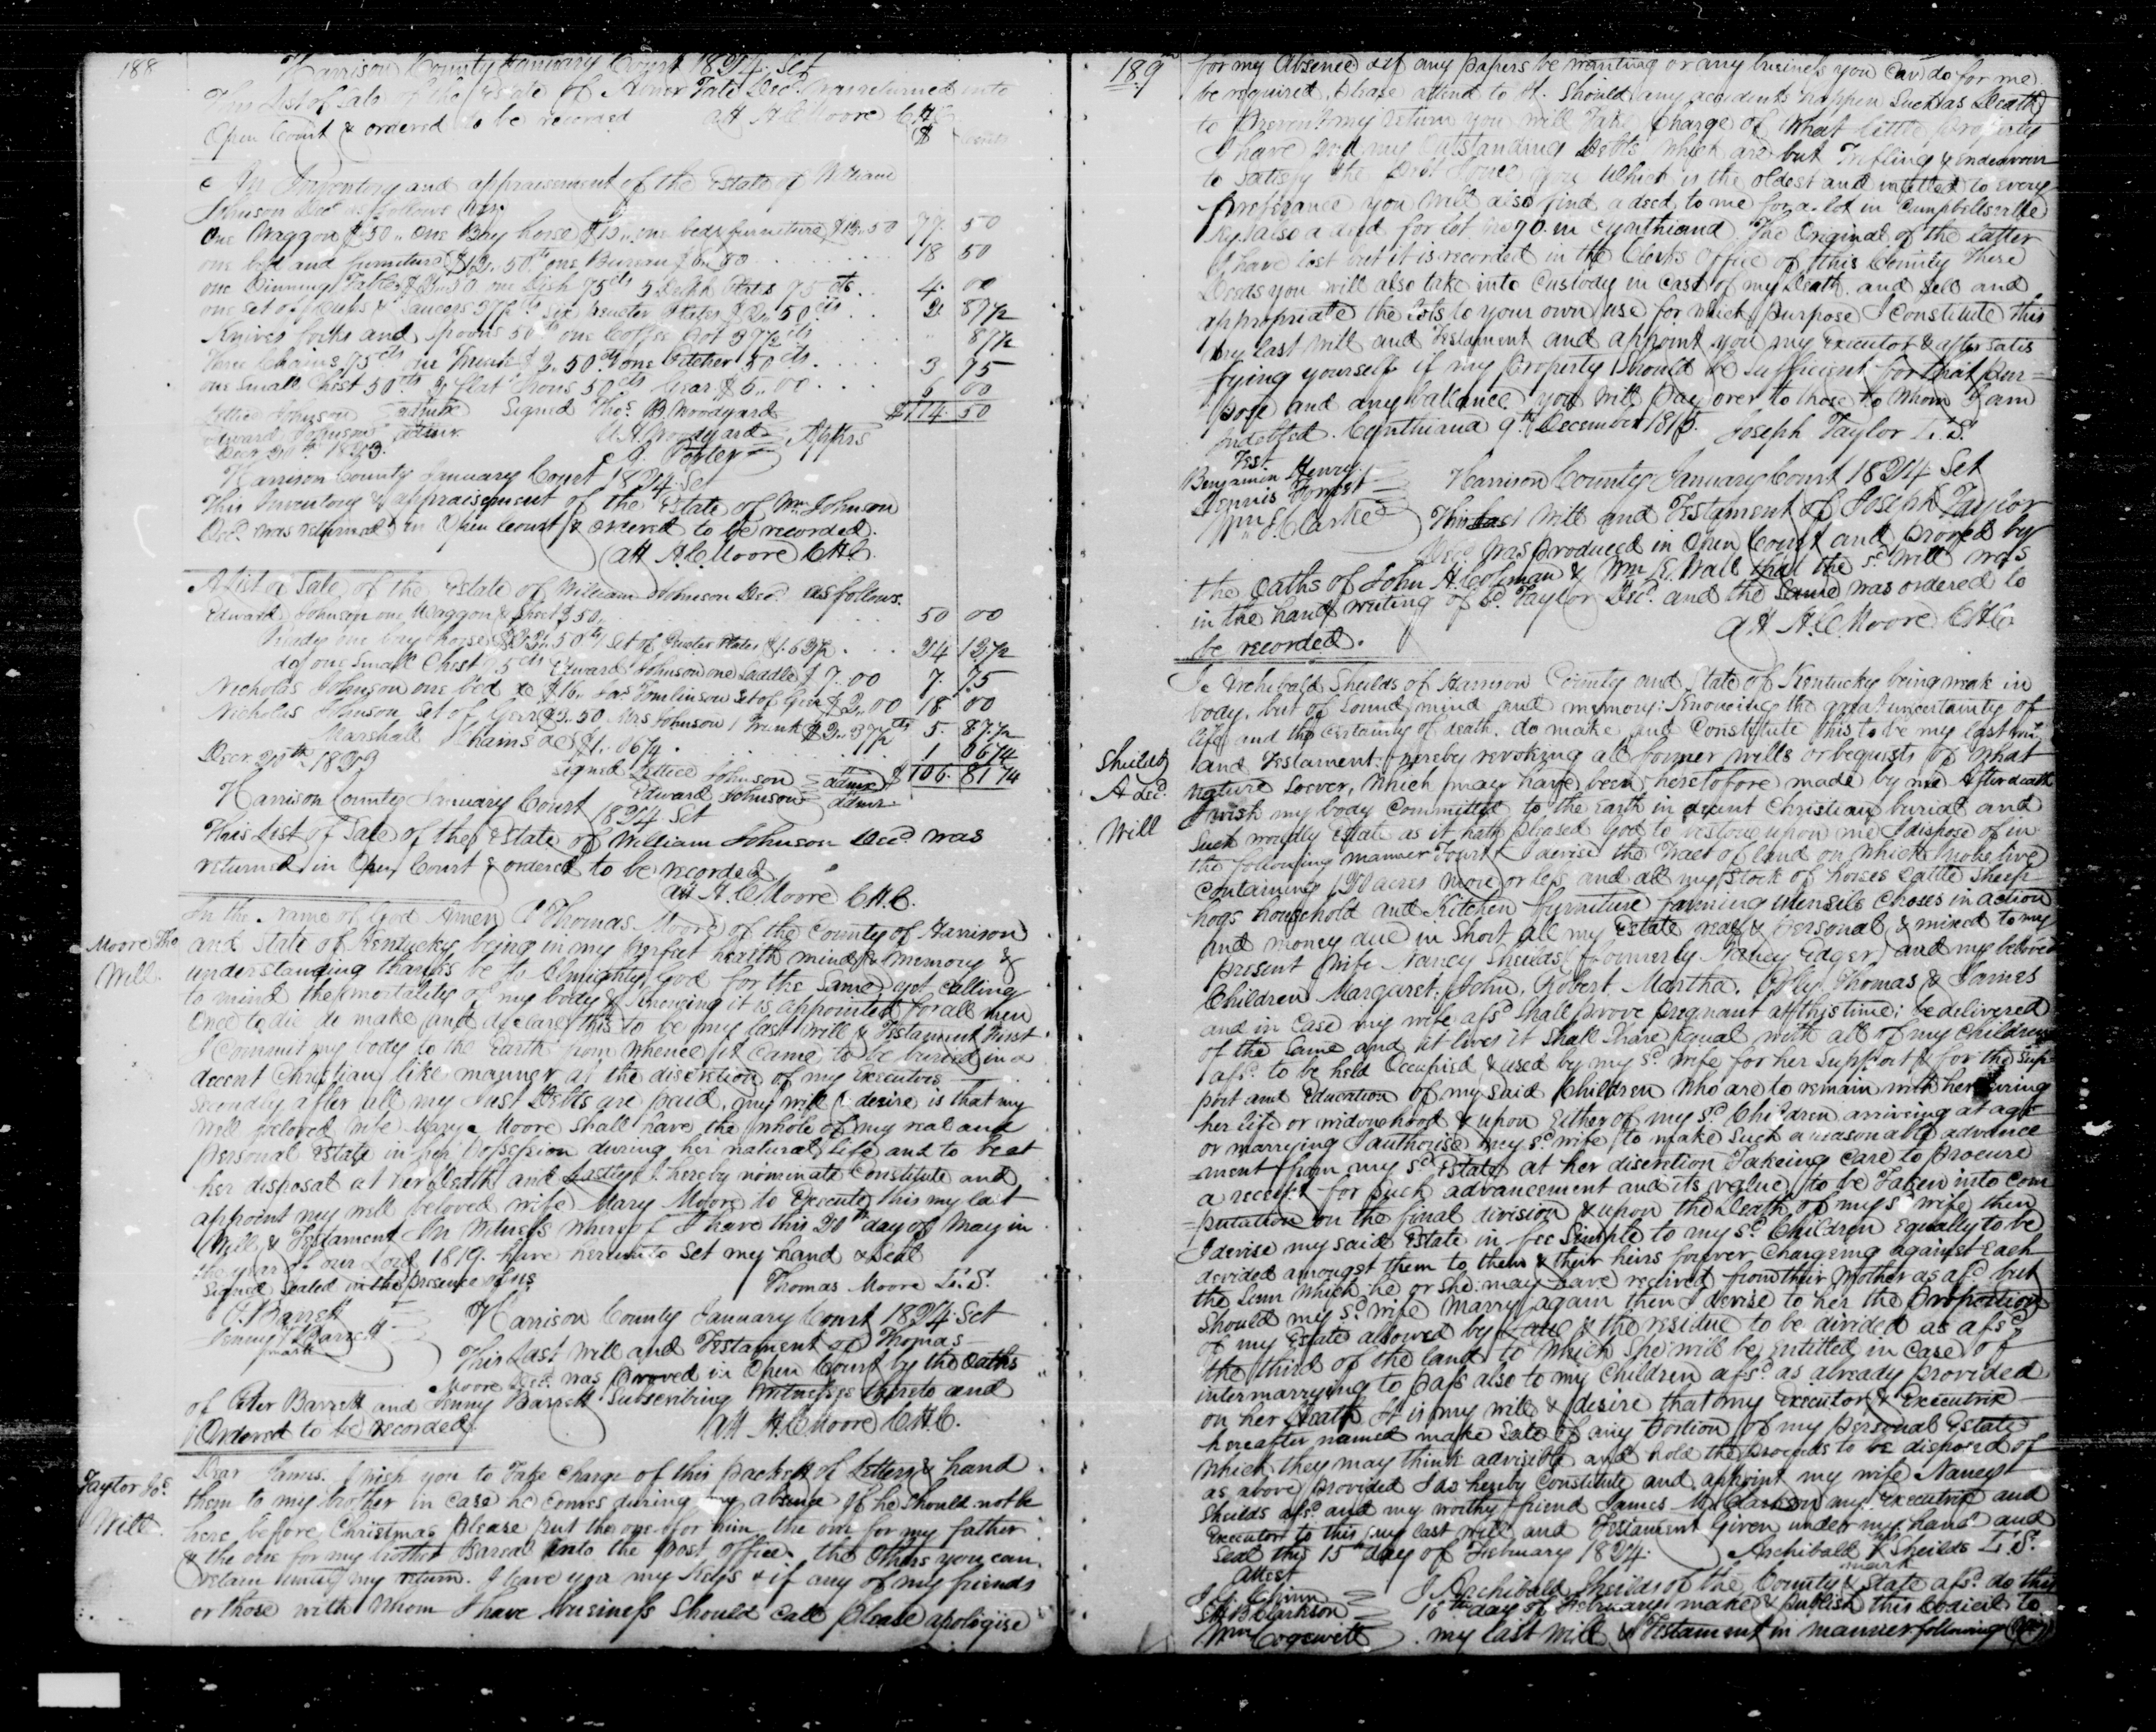 188
Harrison County January Court 1824. Sct
This List of Sale of the Estate of Abner Tate Decd. was returned into
Open Court & ordered to be recorded att H. C. Moore C.H.C
$ cents
An Inventory and appraisement of the Estate of William
Johnson Decd. as follows
One Waggon $50.. One Bay horse $15.. one bed & furniture $12..50 77. 50
one bed and furniture $12..50 cts one Bureau $6..00 18 50
one Dinning Table $2..50 one Dish 75 cts 5 Delph Plates 75 cts 4. 00
one set of Cups & Saucers 37½ cts Six Pewter Plates $2..50 cts 2. 87½
Knives forks and Spoons 50 cts one Coffee Pot 37½ cts 87½
Three Chains 75 cts one Trunk $2..50 cts one Pitcher 50 cts 3 75
one Small Chest 50 cts 2 flat Irons 50 cts Gear $5..00 6 00
Lettice Johnson admx Signed Thos. B. Woodyard $114. 50
Edward Johnson admr. Woodyard Apprs
Decr 20th 1823. Porter
Harrison County January Court 1824. Sct
This Inventory & appraisement of the Estate of Wm Johnson
Decd. was returned in Open Court & ordered to be recorded.
att H. C. Moore C.H.C.
A list of Sale of the Estate of William Johnson Decd. as follows.
Edward Johnson one Waggon & 50.. 50 00
one bay horse $22..50 cts Set of Pewter Plates $1.63½ 24 13½
do one Small Chest 75 cts Edward Johnson one Saddle $7..00 7. 75
Nicholas Johnson one bed &c $16.. Jas Tomlinson Set of Gear $2..00 18 00
Nicholas Johnson Set of Gear $3..50 Mrs Johnson 1 Trunk $2..37½ cts 5. 87½
Marshall Chains &c $1..06¼ 1 06¼
Decr. 20th 1823
Signed Lettice Johnson admx $106. 81¼
Edward Johnson admr.
Harrison County January Court 1824 Sct
This List of Sale of the Estate of William Johnson Decd. was
returned in Open Court & ordered to be recorded
att H. C. Moore C.H.C.
Moore Tho
Will.
In the name of God Amen I Thomas Moore of the County of Harrison
and State of Kentucky being in my perfect health mind & memory &
understanding thanks be to Almighty God for the Same yet calling
to mind the mortality of my body & knowing it is appointed for all men
Once to die do make and declare this to be my last will & Testament First
I Commit my body to the Earth from whence it came to be buried in a
decent Christian like manner at the discretion of my Executors
Secondly after all my Just Debts are paid, my will & desire is that my
well beloved wife Mary Moore shall have the whole of my real and
personal Estate in her Possession during her natural life and to be at
her disposal at her death and Lastly I hereby nominate Constitute and
appoint my well beloved wife Mary Moore to Execute this my last
Will & Testament In Witness whereof I have this 20th day of May in
the year of our Lord 1819. have hereunto Set my hand & Seal
Signed Sealed in the presence of us
Thomas Moore L.S.
P. Barrett
Jenny Barrett
mark
Harrison County January Court 1824. Sct
This Last Will and Testament of Thomas
Moore Decd. was proved in Open Court by the Oaths
of Peter Barrett and Jenny Barrett Subscribing witnesses thereto and
Ordered to be recorded.
att H. C. Moore C.H.C.
Taylor Jos.
Will.
Dear James. I wish you to Take charge of this packet of Letters & hand
them to my brother in case he comes during my absence If he should not be
here before Christmas please put the one for him the one for my father
& the one for my brother into the post office. the others you can
retain until my return. I leave you my Keys & if any of my friends
or those with whom I have business should call please apologise
189
for my Absence & if any papers be wanting or any business you can do for me
be required, please attend to it. Should any accidents happen Such as Death
to prevent my return you will take Charge of what little property
I have and my Outstanding Debts which are but Trifling & endeavour
to Satisfy the which is the oldest and intitled to every
preferance you will also find a deed to me for a lot in Campbellsville
Ky. also a deed for lot No 90. in Cynthiana The Original of the latter
I have lost but it is recorded in the Clerks Office of this County These
Deeds you will also take into Custody in Case of my Death. and Sell and
appropriate the Lots to your own use for which purpose I Constitute this
my last Will and Testament and appoint you my Executor & after satis
fying yourself if my property should be Sufficient for that pur-
pose and any ballance you will pay over to those to whom I am
indebted. Cynthiana 9th December 1815. Joseph Taylor L.S.
Test.
Benjamin Henry
Dennis
Wm. E. Clarke
Harrison County January Court 1824 Sct
This last Will and Testament of Joseph Taylor
Decd. was produced in Open Court and proved by
the Oaths of John H. Coleman & Wm. E. Wall that the sd. Will was
in the hand writing of sd. Taylor Decd. and the Same was ordered to
be recorded.
att H. C. Moore C.H.C.
Sheilds
A decd.
Will
I Archibald Sheilds of Harrison County and State of Kentucky being weak in
body. but of Sound mind and memory: Knowing the great uncertainty of
life and the certainty of death. do make and Constitute this to be my last will
and Testament: hereby revoking all former wills or bequests of what
nature Soever, which may have been heretofore made by me After death
I wish my body Committed to the Earth in decent Christian burial and
Such worldly Estate as it hath pleased God to bestow upon me I dispose of in
the following manner Towit I devise the Tract of land on which I now live
containing 120 acres more or less and all my Stock of horses Cattle Sheep
hogs household and Kitchen furniture farming utensils Choses in action
and money due in Short all my Estate real & personal & mixed to my
present wife Nancy Sheilds (formerly Nancy Edger) and my beloved
Children Margaret, John, Robert Martha. Thomas & James
and in Case my wife afsd. Shall prove pregnant at this time; be delivered
of the Same and it lives it Shall Share Equal with all of my Children
afsd. to be held Occupied & used by my sd. wife for her Support & for the Sup-
port and Education of my said Children who are to remain with her during
her life or widowhood & upon Either of my sd. Children arriveing at age
or marrying I authorise my sd. wife to make Such a reasonable advance
-ment from my sd. Estate at her discretion Takeing Care to procure
a receipt for Such advancement and its value, to be Taken into Com
-putation on the final division & upon the Death of my sd. wife then
I devise my said Estate in fee Simple to my sd. Children Equally to be
devided amongst them to them & their heirs forever Chargeing against Each
the Sum which he or she may have received from their Mother as afsd. but
should my sd. wife marry again then I devise to her the proportion
of my Estate allowed by Law & the residue to be divided as afsd.
the third of the land to which she will be Entitled in Case of
intermarrying to pass also to my Children afsd. as already provided
on her Death It is my will & desire that my Executor & Executrix
hereafter named make Sale of any portion of my personal Estate
which they may think advisible and hold the proceeds to be disposed of
as above provided I do hereby Constitute and appoint my wife Nancy
Sheilds afsd. and my worthy friend James M. Clarkson my Executrix and
Executor to this my last Will and Testament Given under my hand and
Seal this 15th day of February 1824. Archibald X Sheilds L.S.
mark
Attest
Chinn
Clarkson
Wm Cogswell
I Archibald Sheilds of the County & State afsd. do this
16th day of February make & publish this Codicil to
my last Will & Testament in manner following (Viz)